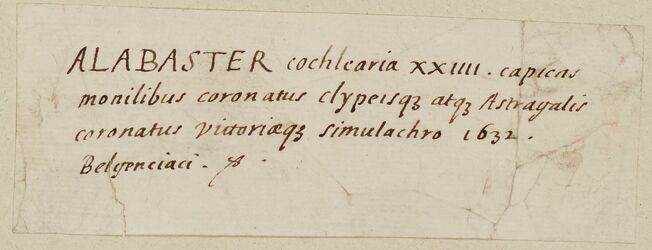 ALABASTER cochlearia XXIIII. capicas
monilibus coronatus clypeisqꝫ atqꝫ Astragalis
coronatus victoriæqꝫ simulachro 1632.
Belgenciaci.